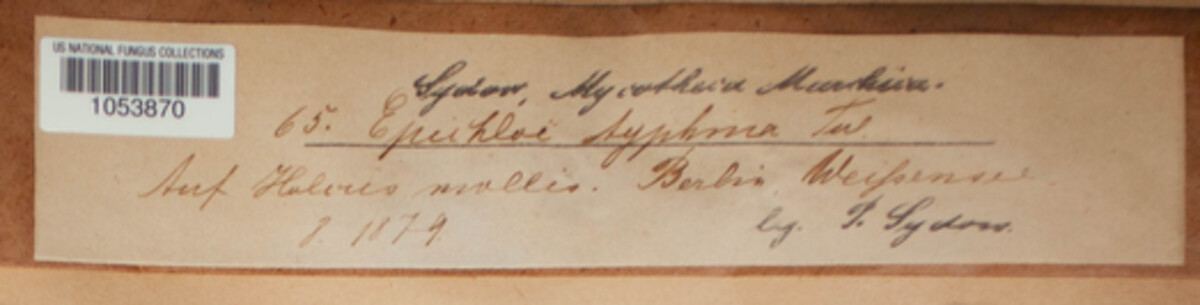 US NATIONAL FUNGUS COLLECTIONS
1053870
Sydow, Mycotheca Marchica.
65. Epichloë typhina Tul.
Auf Holcus mollis. Berlin, Weißensee
8. 1879.
leg. P. Sydow.